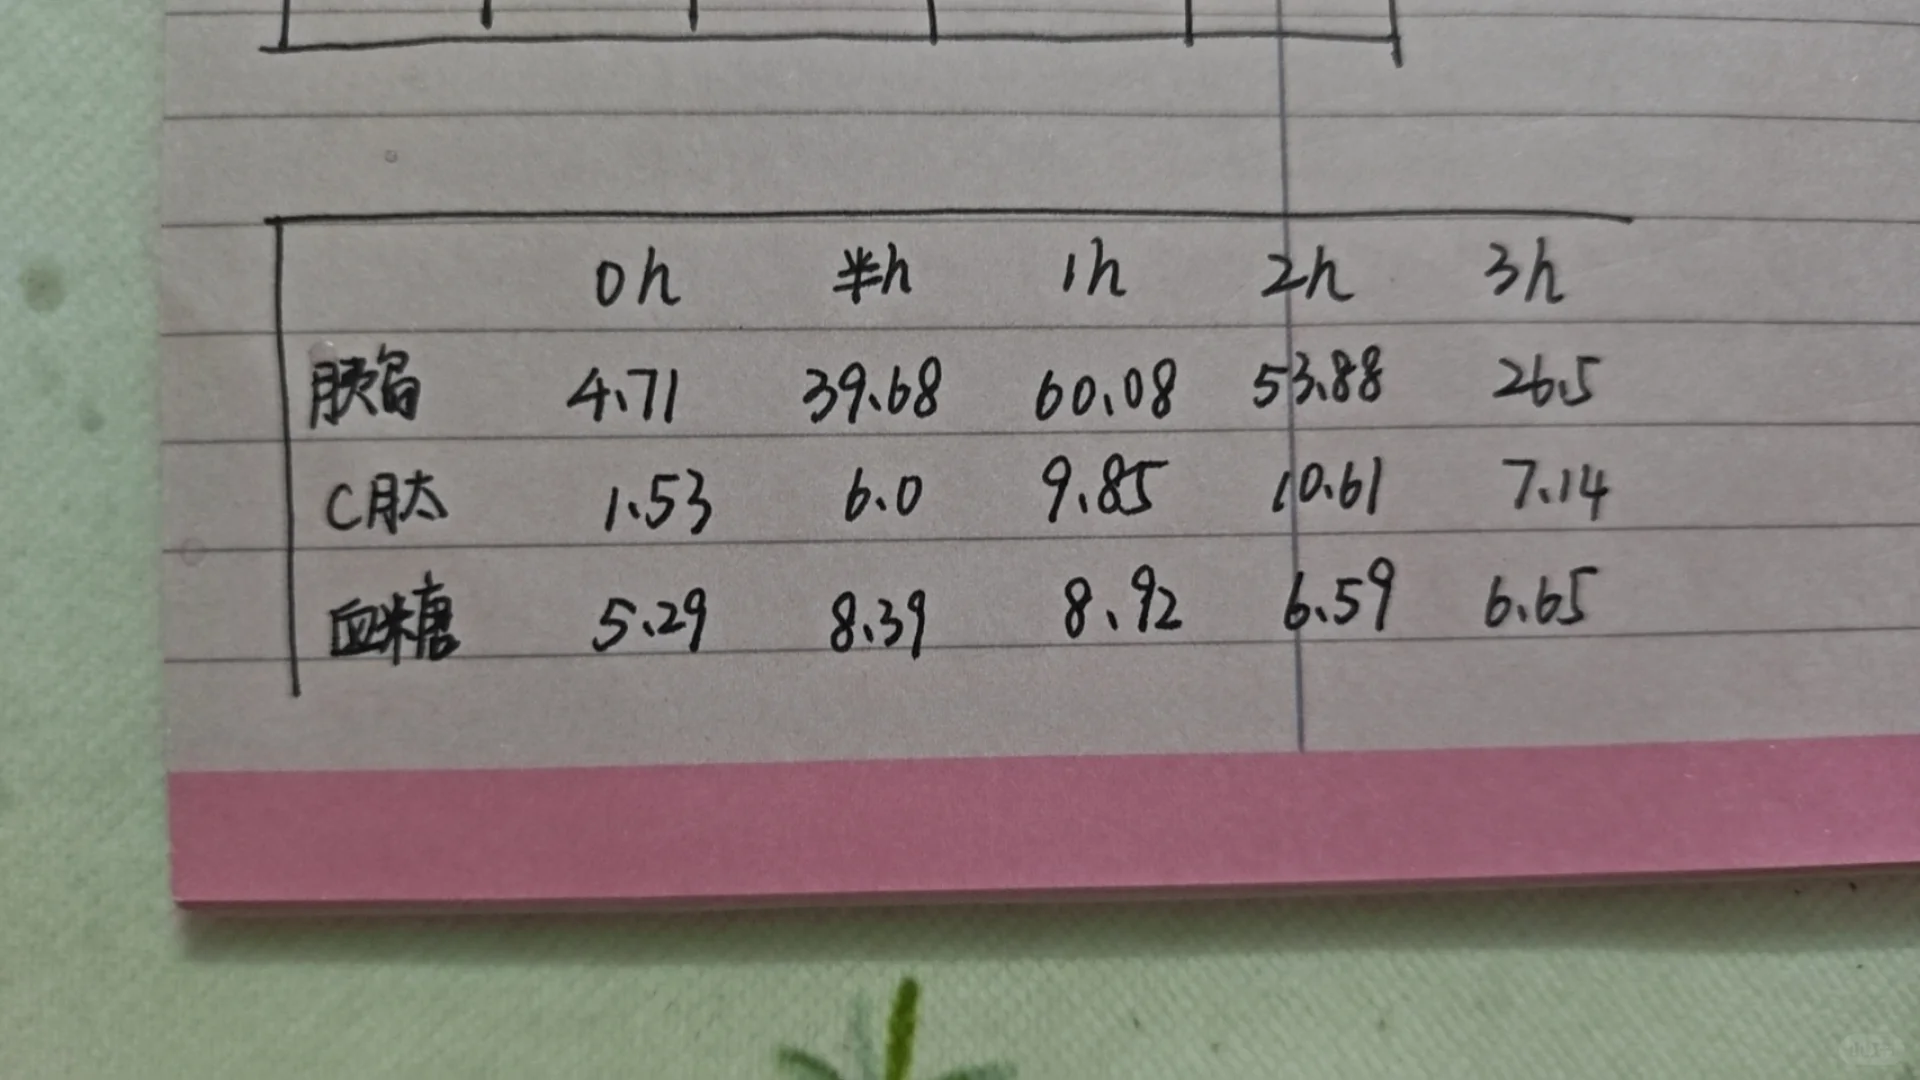 0h 半h 1h 2h 3h
胰岛 4.71 39.68 60.08 53.88 26.5
C肽 1.53 6.0 9.85 10.61 7.14
血糖 5.29 8.39 8.92 6.59 6.65